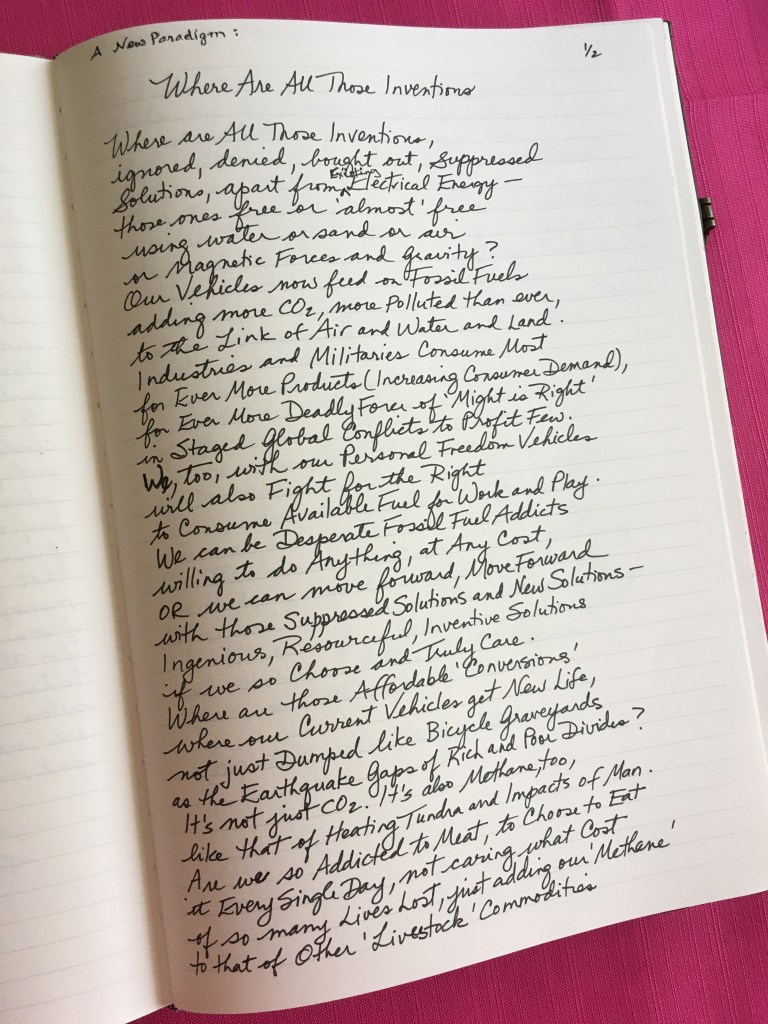 A New Paradigm :
1/2
Where Are All Those Inventions
Where are All Those Inventions,
ignored, denied, bought out, Suppressed
Solutions, apart from Existing Electrical Energy –
those ones free or 'almost' free
using water or sand or air
or Magnetic Forces and Gravity?
Our Vehicles now feed on Fossil Fuels
adding more CO2, more Polluted than ever,
to the Link of Air and Water and Land.
Industries and Militaries Consume Most
for Ever More Products (Increasing Consumer Demand),
for Ever More Deadly Force of 'Might is Right'
in Staged Global Conflicts to Profit Few.
We, too, with our Personal Freedom Vehicles
will also Fight for the Right
to Consume Available Fuel for Work and Play.
We can be Desperate Fossil Fuel Addicts
willing to do Anything, at Any Cost,
OR we can move forward, Move Forward
with those Suppressed Solutions and New Solutions –
Ingenious, Resourceful, Inventive Solutions
if we so Choose and Truly Care.
Where are those Affordable 'Conversions'
where our Current Vehicles get New Life,
not just Dumped like Bicycle Graveyards
as the Earthquake Gaps of Rich and Poor Divides?
It's not just CO2. It's also Methane, too,
like that of Heating Tundra and Impacts of Man.
Are we so Addicted to Meat, to Choose to Eat
it Every Single Day, not caring what Cost
of so many Lives Lost, just adding our 'Methane'
to that of Other 'Livestock' Commodities